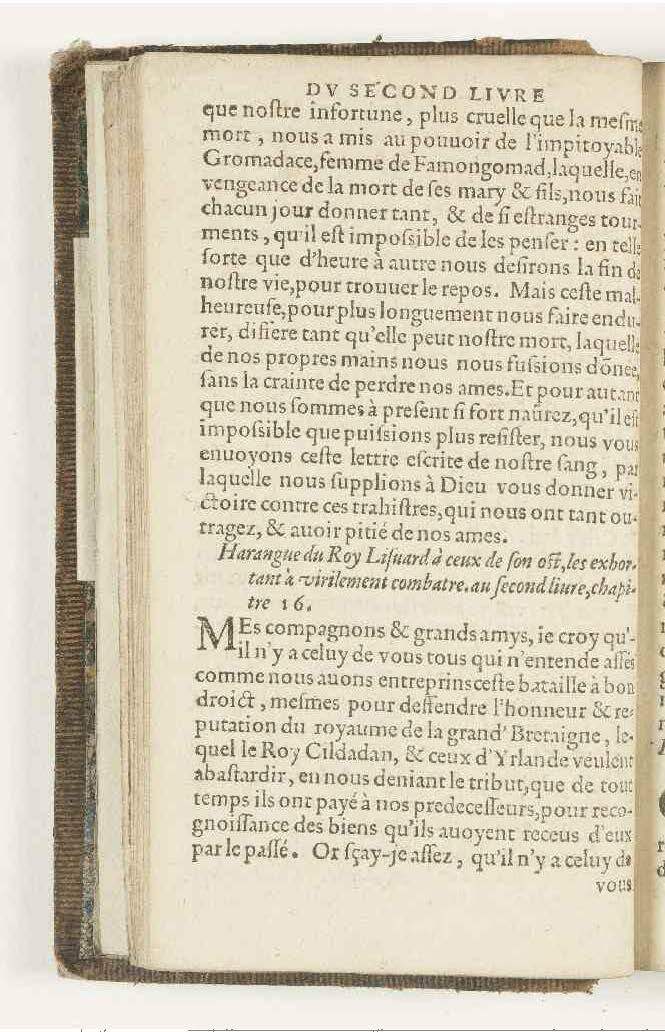 DV SECOND LIVRE
que noſtre infortune, plus cruelle que la meſme
mort, nous a mis au pouuoir de l'impitoyable
Gromadace,femme de Famongomad,laquelle,en
vengeance de la mort de ſes mary & fils,nous fait
chacun jour donner tant, & de ſi eſtranges tour-
ments, qu'il eſt impoſsible de les penſer : en telle
ſorte que d'heure à autre nous deſirons la fin de
noſtre vie,pour trouuer le repos. Mais ceſte mal-
heureuſe,pour plus longuement nous faire endu-
rer, differe tant qu'elle peut noſtre mort, laquelle
de nos propres mains nous nous fuſsions dōnee,
ſans la crainte de perdre nos ames.Et pour autant
que nous ſommes à preſent ſi fort naürez,qu'il eſt
impoſsible que puiſsions plus reſiſter, nous vous
enuoyons ceſte lettre eſcrite de noſtre ſang, par
laquelle nous ſupplions à Dieu vous donner vi-
ctoire contre ces trahiſtres,qui nous ont tant ou-
tragez, & auoir pitié de nos ames.
Harangue du Roy Liſuard à ceux de ſon oſt,les exhor-
tant à virilement combatre. au ſecond liure,chapi-
tre 16.
MEs compagnons & grands amys, ie croy qu'-
il n'y a celuy de vous tous qui n'entende aſſés
comme nous auons entreprins ceſte bataille à bon
droict, meſmes pour deffendre l'honneur & re-
putation du royaume de la grand' Bretaigne, le-
quel le Roy Cildadan, & ceux d'Yrlande veulent
abaſtardir, en nous deniant le tribut,que de tout
temps ils ont payé à nos predeceſſeurs,pour reco-
gnoiſſance des biens qu'ils auoyent receus d'eux
par le paſſé. Or ſçay-je aſſez, qu'il n'y a celuy de
vous